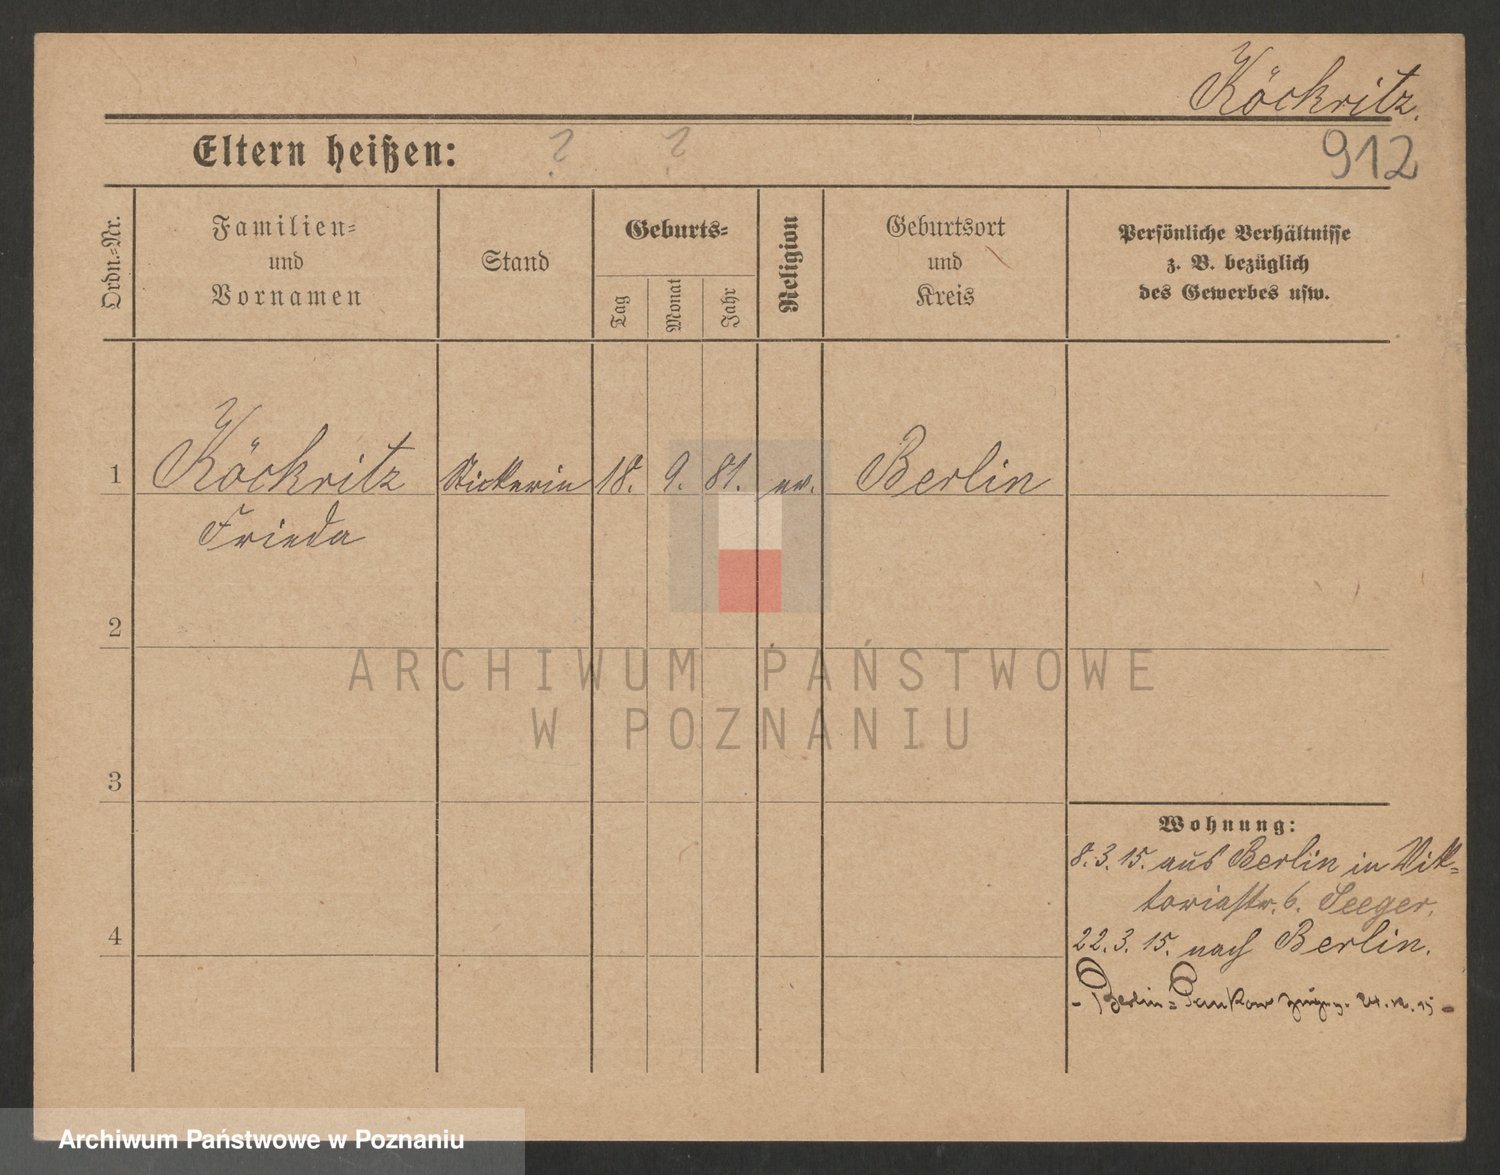 Köckritz.
Eltern heißen: ? ?
912
Ordn.-Nr.
Familien-
und
Vornamen
Stand
Geburts-
Tag
Monat
Jahr
Religion
Geburtsort
und
Kreis
Persönliche Verhältnisse
z. B. bezüglich
des Gewerbes usw.
1 Köckritz Stickerin 18. 9. 81. ev. Berlin
Frieda
2
ARCHIWUM PAŃSTWOWE
W POZNANIU
3
Wohnung:
8.3.15. aus Berlin in Vik-
toriastr. 6. Seeger.
4
22.3.15. nach Berlin.
- Berlin-Pankow 15 -
Archiwum Państwowe w Poznaniu